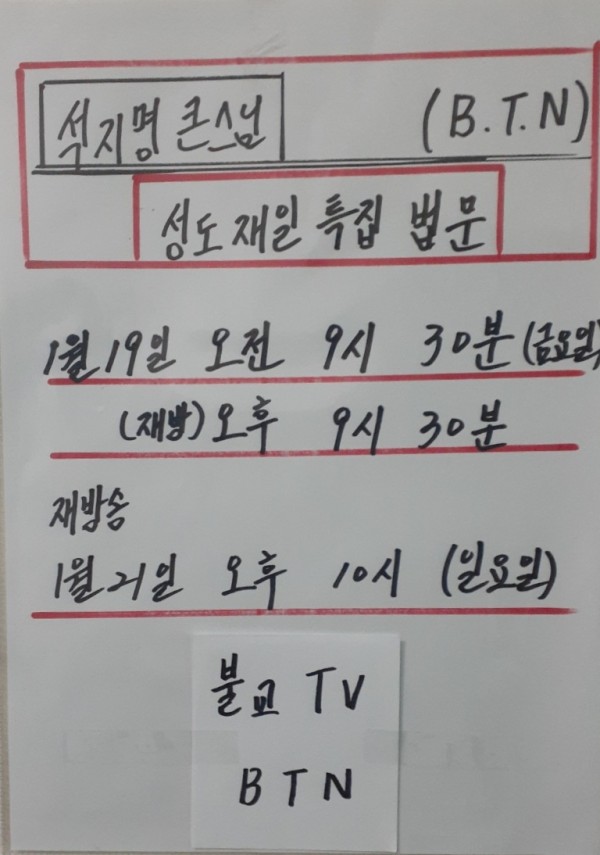 석지명 큰스님 (B.T.N)
성도재일 특집 법문
1월 19일 오전 9시 30분 (금요일)
(재방) 오후 9시 30분
재방송
1월 21일 오후 10시 (일요일)
불교 TV
BTN